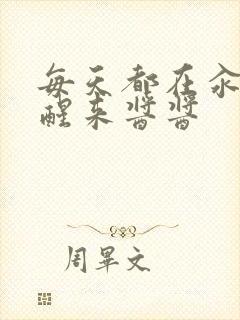 每天都在汆
醒来酱酱
周畢文